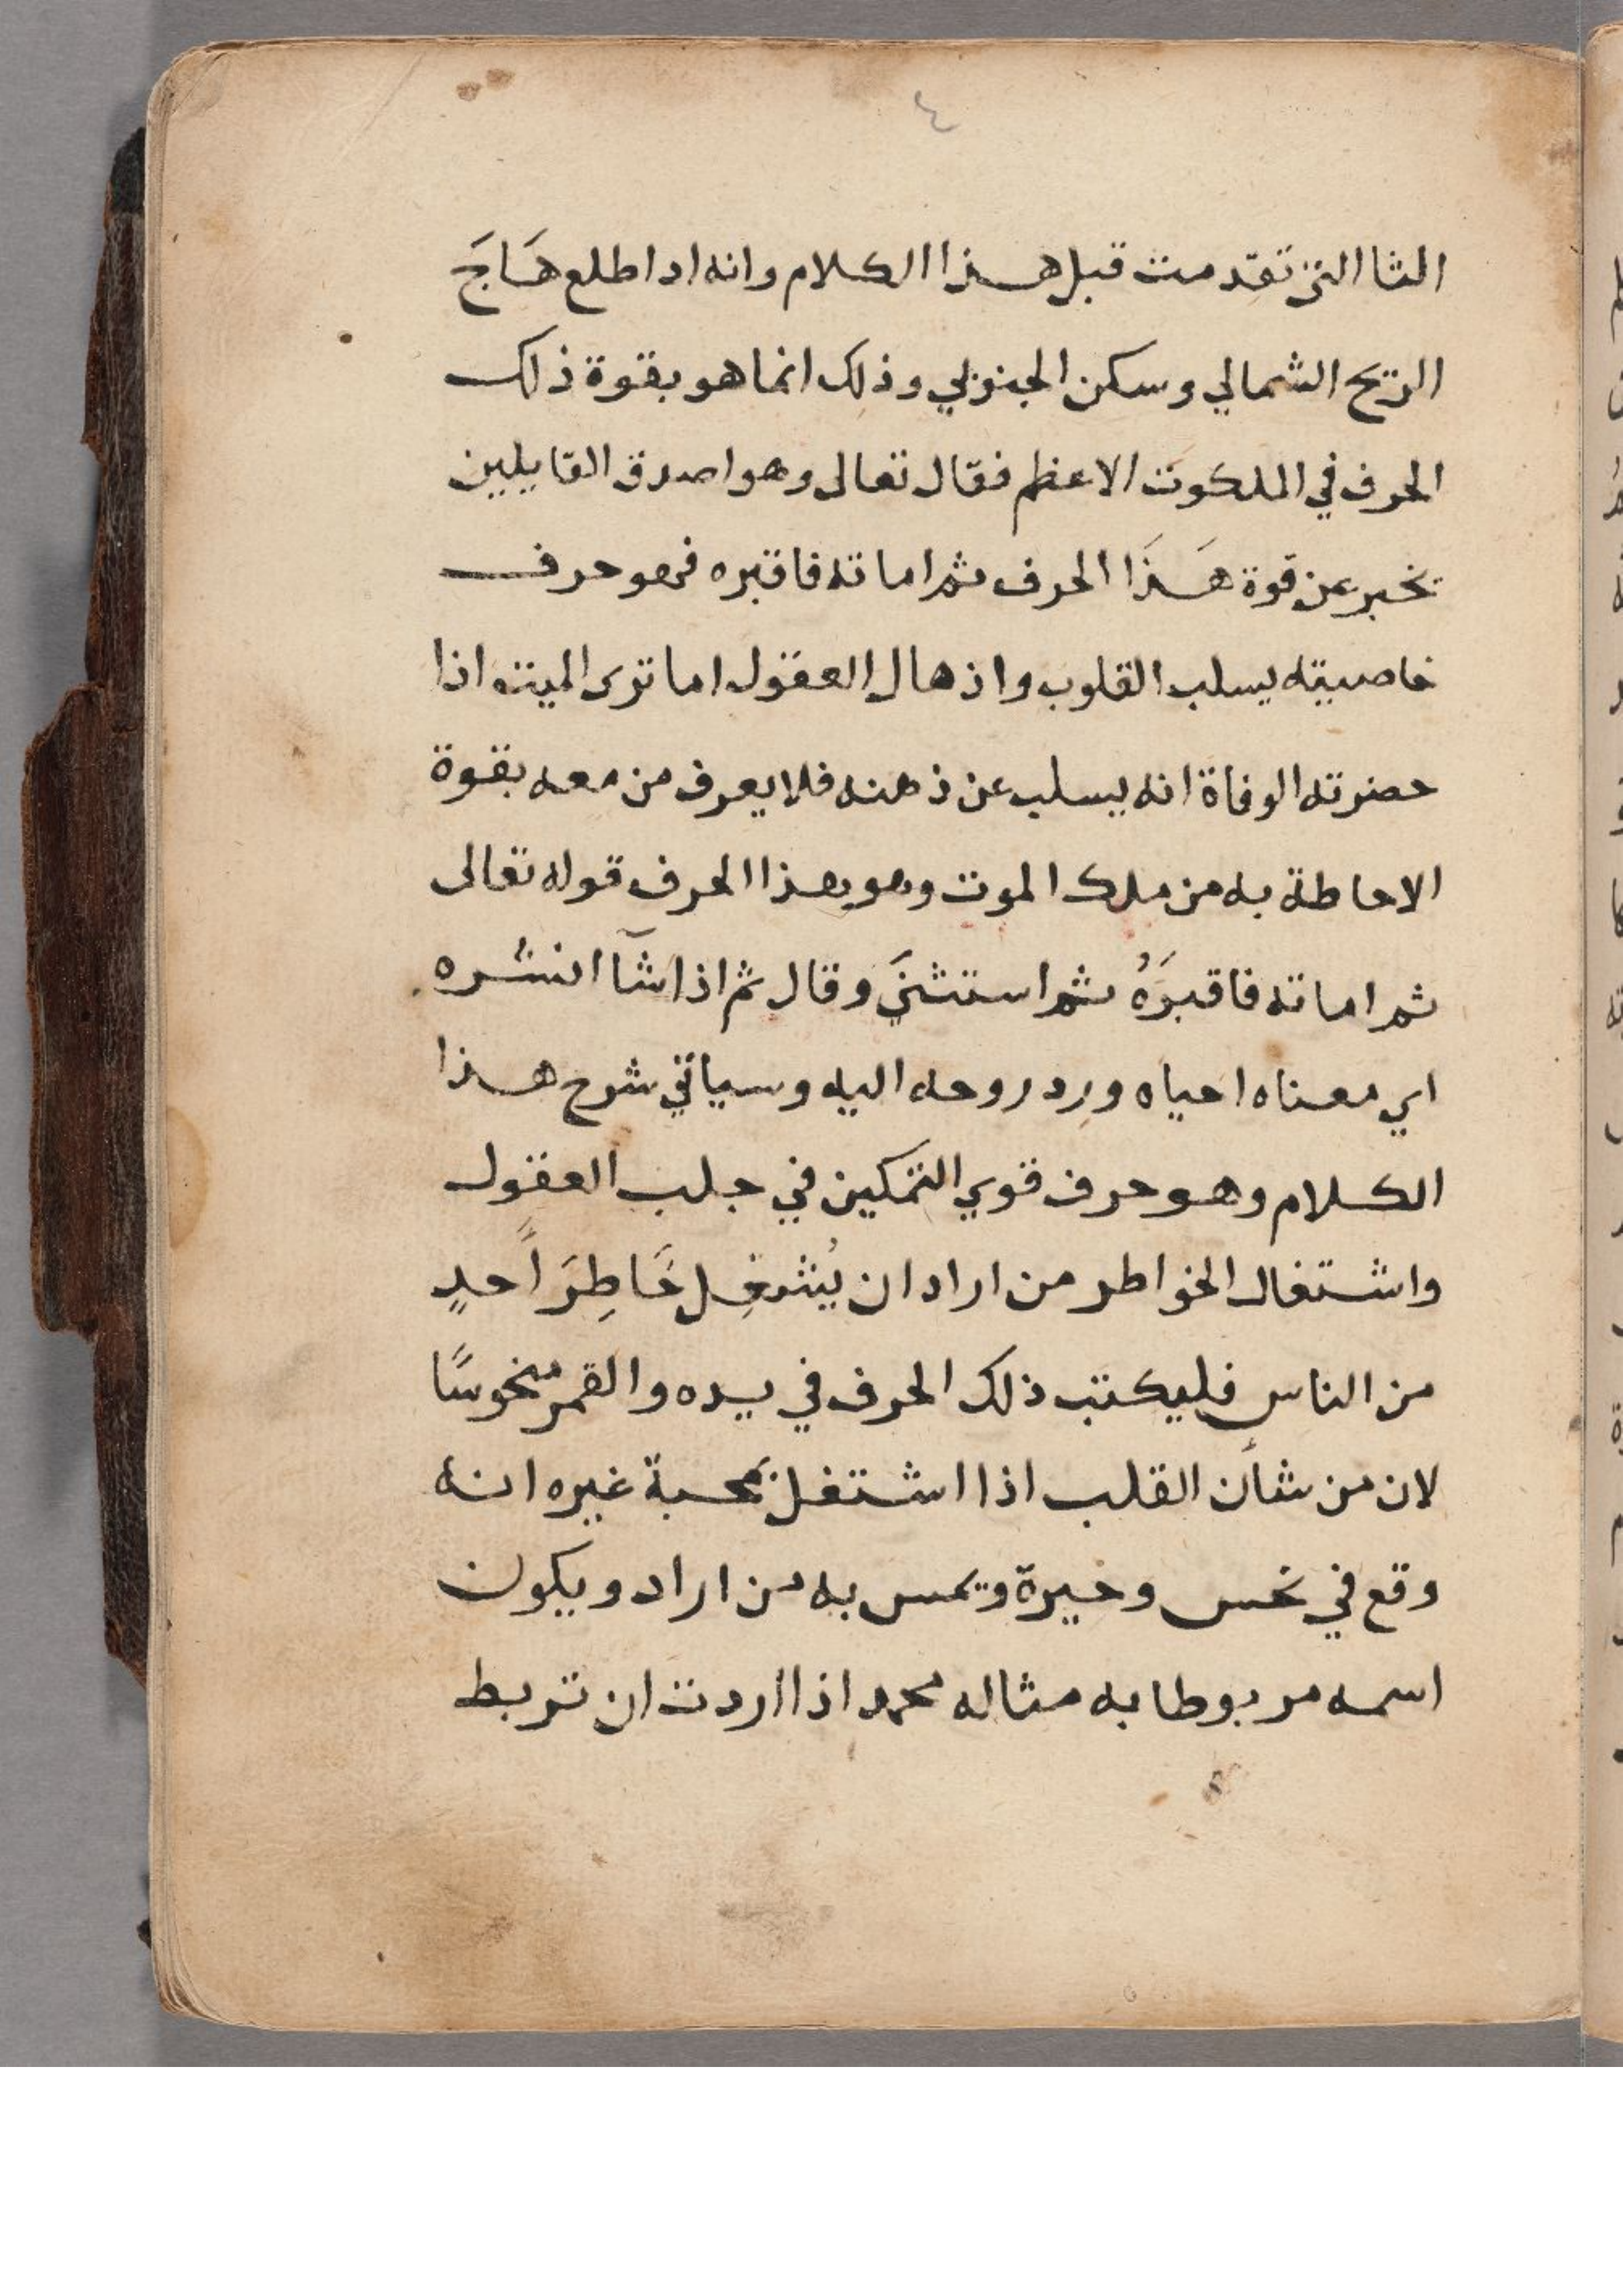 ٤
الثا التى تقدمت قبل هذا الكلام وانه ادا طلع هَاجَ
الريح الشمالي وسكن الجنوبي وذلك انما هو بقوة ذلك
الحرف في الملكوت الاعظم فقال تعالى وهو اصدق القايلين
يخبر عن قوة هَذَا الحرف ثم اماته فاقبره فهو حرف
خاصيته يسلب القلوب واذهال العقول اما ترى الميت اذا
حضرته الوفاة انه يسلب عن ذهنه فلا يعرف من معه بقوة
الاحاطة به من ملك الموت وهو بهذا الحرف قوله تعالى
ثم اماته فاقبَرَهُ ثم استثنَي وقال ثم اذا شآ انشره
اي معناه احياه ورد روحه اليه وسياتي شرح هذا
الكلام وهو حرف قوي التمكين في جلب العقول
واشتغال الخواطر من اراد ان يُشغِل خَاطِرَ اَحدٍ
من الناس فليكتب ذلك الحرف في يده والقمر منخوسًا
لان من شأن القلب اذا اشتغل بمحبة غيره انه
وقع في نحس وحيرة ويمس به من اراد ويكون
اسمه مربوطا به مثاله محمد اذا اردت ان تربط